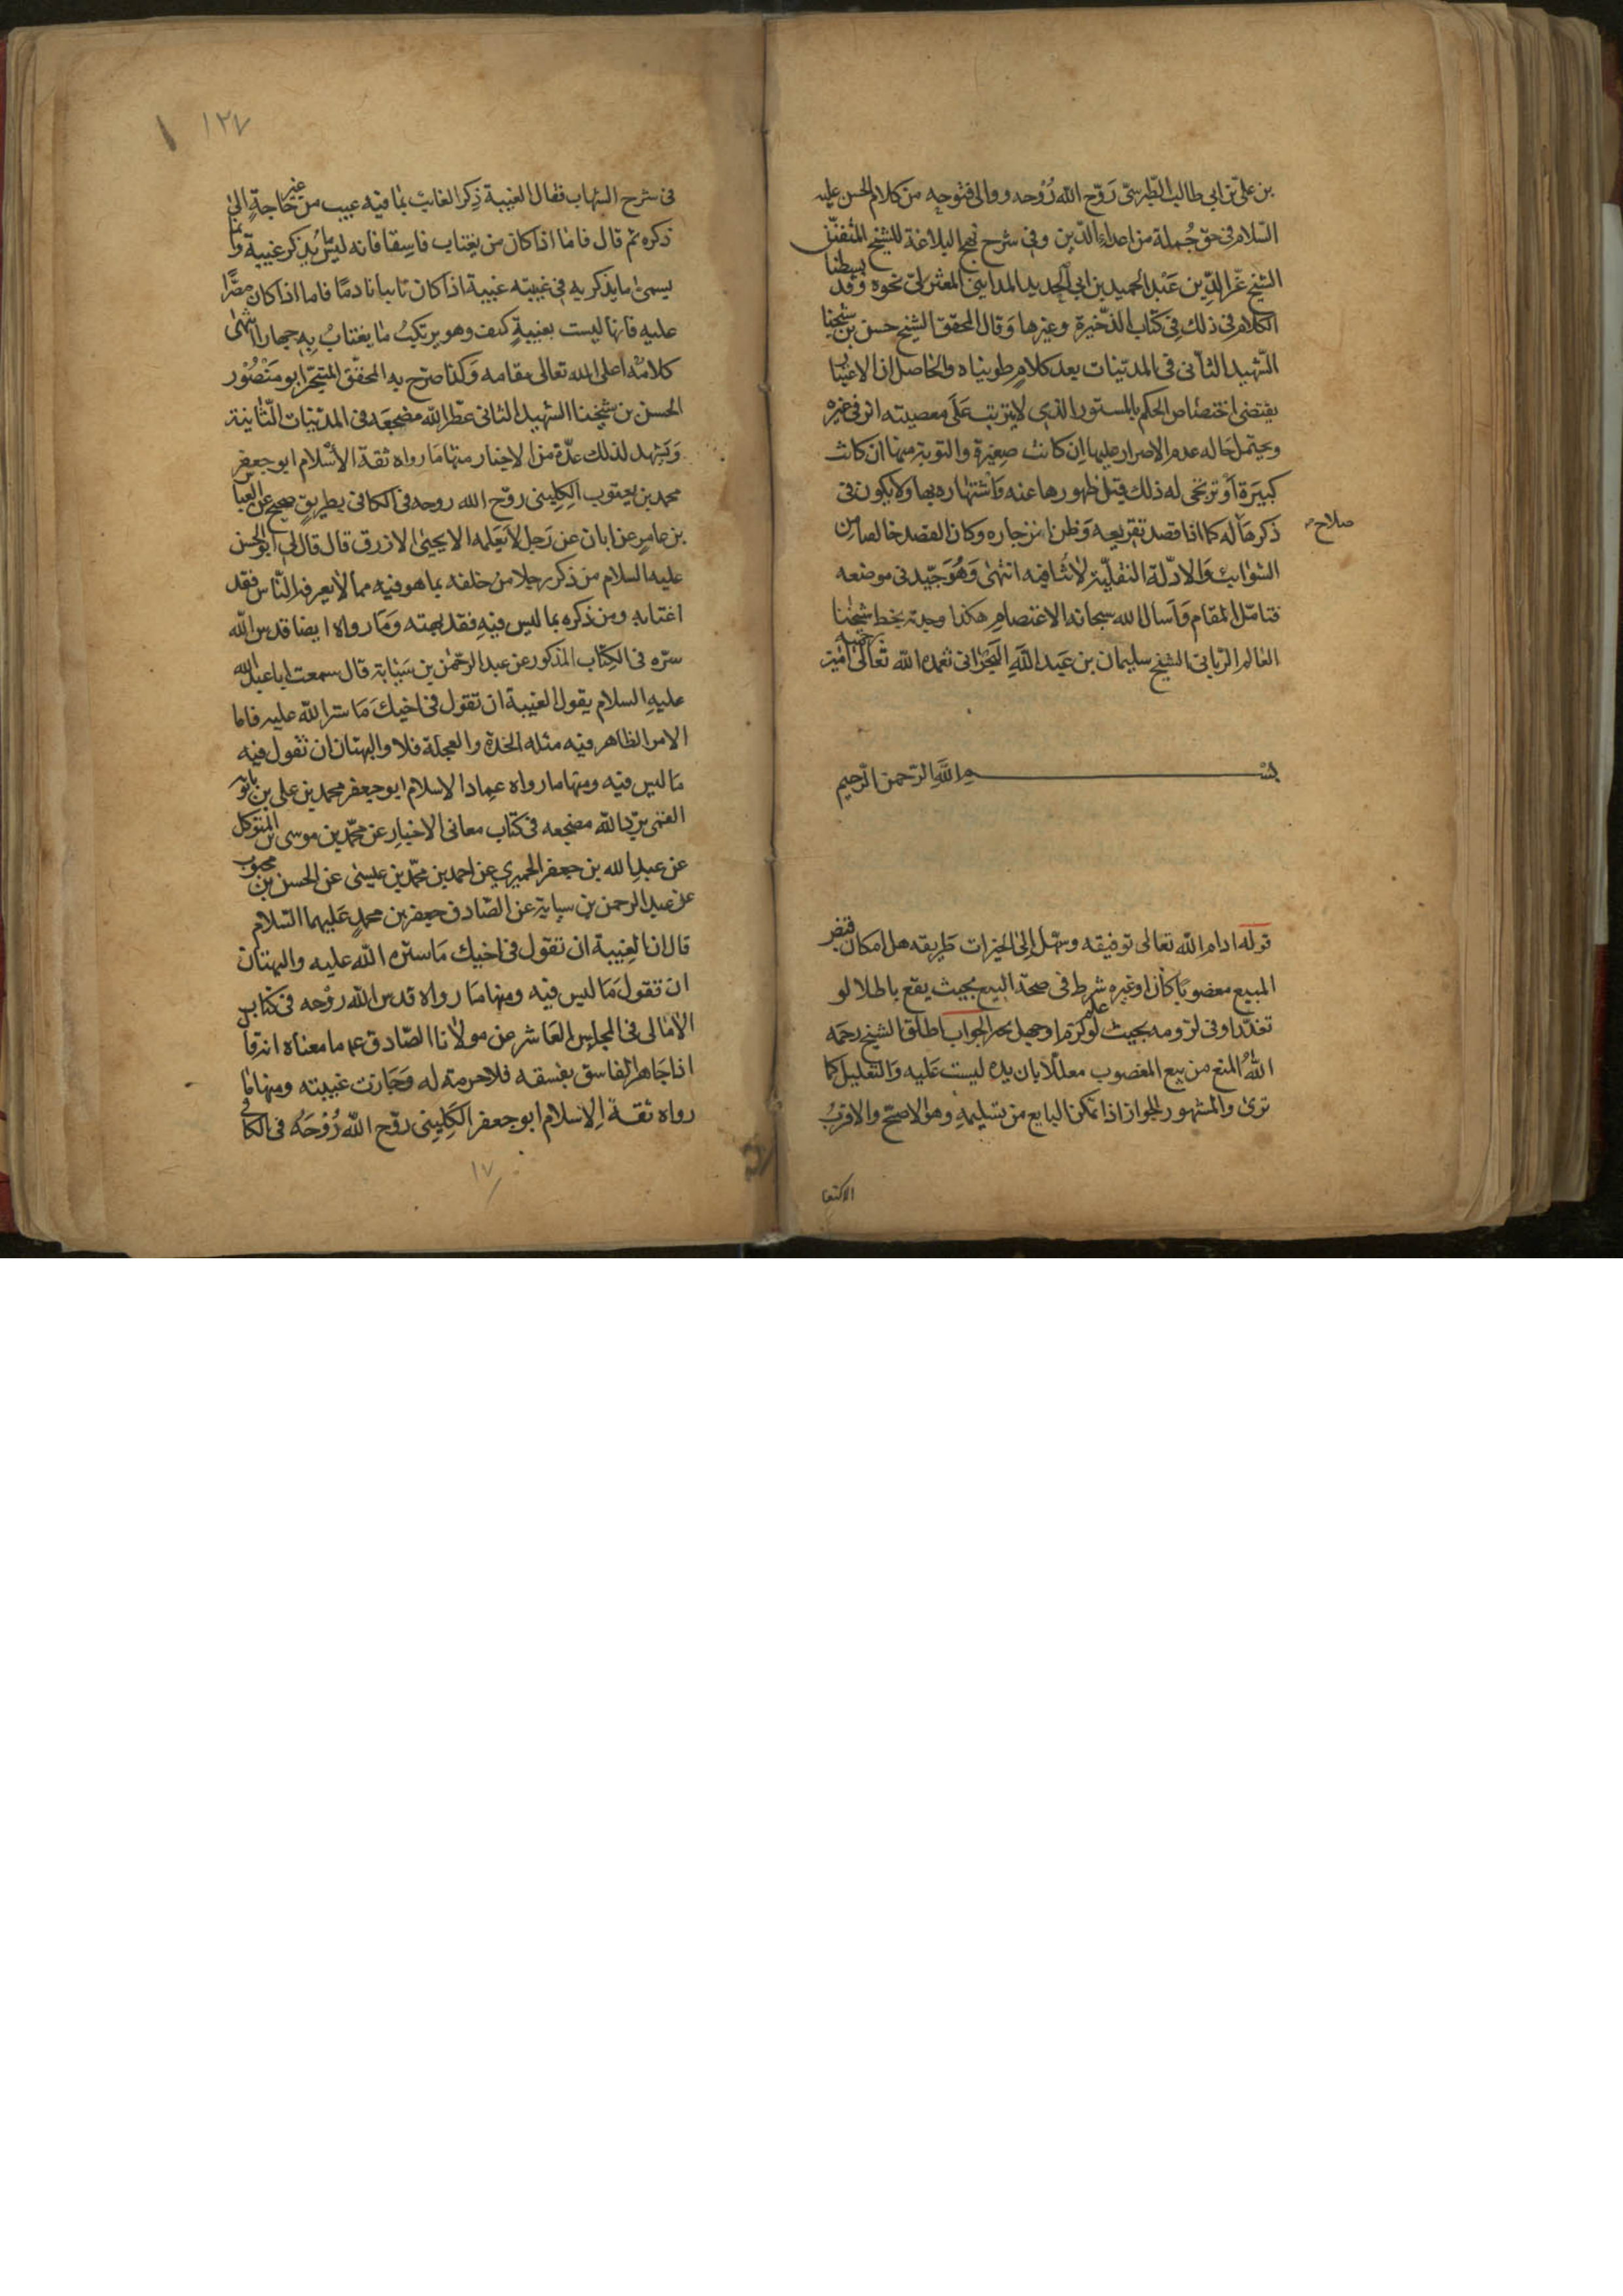 بن علي بن ابي طالب الطبرسي رَوّح الله رُوحه ووالى فتوحه من كلام الحسن عليه
السّلام في حق جُملة من اعداء الدّين وفي شرح نهج البلاغة للشيخ المتفنّن
الشيخ عزّ الدّين عَبْد الحميد بن ابي الحديد المدايني المعتزلي نحوه وقد بسطنا
الكلام في ذلك في كتاب الذّخيرة وغيرها وَقال المحقق الشيخ حسن بن شيخنا
الشّهيد الثاني في المدنيّات بعد كلامٍ طويناه والحاصل ان الاعتبار
يقتضي اختصاص الحكم بالمستور الذي لا يترتب عَلَى معصيته اثر في غيره
ويحتمل حَاله عدم الاصرار عليها ان كانت صغيرة والتوبة منها ان كانت
كبيرَة اَوْ ترجّى له ذلك قبل ظهورها عنه وَاشتهاره بها ولا يكون في
ذكرهَا له كما اذا قصد تقريعه وَظن انزجاره وكان القصد خالصا من
صلاح
الشوائب وَالادّلة النقليّة لا تُنافيه انتهى وَهُوَ جيّد في موضعه
فتامّل المقام وَاَسال الله سبحانه الاعتصام هكذا وجدته بخط شيخنا
العالم الرّباني الشيخ سليمان بن عَبد الله البَحراني تغمده الله تعالى برحمته امين
بسم الله الرّحمن الرّحيم
قوله ادام الله تعالى توفيقه وسهّل اِلى الخيرات طريقه هل امكان قبض
المبيع مغصوبًا كان او غيره شرط في صحّة البيع بحيث يقع باطلا لو
تعذّر او في لزومه بحيث لو علم لزم او جهل بحر الجواب اطلق الشيخ رحمه
اللهُ المنع من بيع المغصوب معللًا بان يده ليست عَليه وَالتعليل كما
ترى والمشهور الجواز اذا تمكن البايع من تسليمهِ وهو الاصحّ والاقربُ
الاكتفا
١٢٧
في شرح الشهاب فقال الغيبة ذِكر الغائب بمَا فيه عيب من غير حَاجةٍ الى
ذكره ثم قال فامّا اذا كان من يغتاب فاسِقا فانه ليس ما يُذكر غيبة وانما
يسمى ما يذكر به في غيبته غيبة اذا كان تائبا نادمًا فاما اذا كان مصرًّا
عليه فانها ليست بغيبةٍ كيف وهو يرتكبُ ما يغتابُ بهِ جهارا انتهى
كلامُه اعلى الله تعالى مقامه وَكذا صرّح به المحقّق المتبحّر ابو مَنْصُوْر
الحسن بن شيخنا الشهيد الثاني عطّر الله مضجعَه في المدنيّات الثّانية
وَيشهد لذلك عدّة من الاخبار منها مَا رواه ثقة الاسْلام ابو جعفر
محمد بن يعقوب الكليني روّح الله روحه في الكافي بطريقٍ صحيح عن العبّا
بن عامرٍ عن ابان عن رَجل لا نَعلمه الا يحيى الازرق قال قال لي ابو الحسن
عليه السلام من ذكر رجلا من خلفه بما هو فيه مما لا يعرفه النّاس فقد
اغتابه ومن ذكره بما ليس فيهِ فقد بهته وَمَا رواه ايضا قدس الله
سرّه في الكِتاب المذكور عن عبد الرّحمٰن بن سَيَابة قال سمعت ابا عبد الله
عليهِ السلام يقول الغيبة ان تقول في اخيكَ مَا ستر الله عليه فاما
الامر الظاهر فيه مثله الحدّة والعجلة فلا والبهتان ان تقول فيه
مَا ليس فيه ومنها ما رواه عماد الاسلام ابو جعفر محمد بن علي بن بابويه
القمي برّد الله مضجعه في كتاب معاني الاخبار عن محّمد بن موسى بن المتوكل
عن عبدِ الله بن جعفر الحميري عن احمد بن محّمد بن عيسٰى عن الحسن بن محبوب
عن عبد الرحمن بن سيابة عن الصّادق جعفر بن محمدٍ عَليهما السّلام
قال ان الغِيبة ان تقول في اخيك مَا سترَه الله عليه والبهتان
ان تقولَ مَا ليس فيه ومنها مَا رواه قدس الله روْحه في كتاب
الاَمالي في المجلس العَاشر عن مولانا الصّادق عم ما معناه انه قا
اذا جَاهر الفاسق بفسقه فلا حرمة له وَجَازت غيبته ومنها مَا
رواه ثقة الاِسلام ابو جعفر الكليني روّح الله رُوْحَهُ في الكافي
١٧